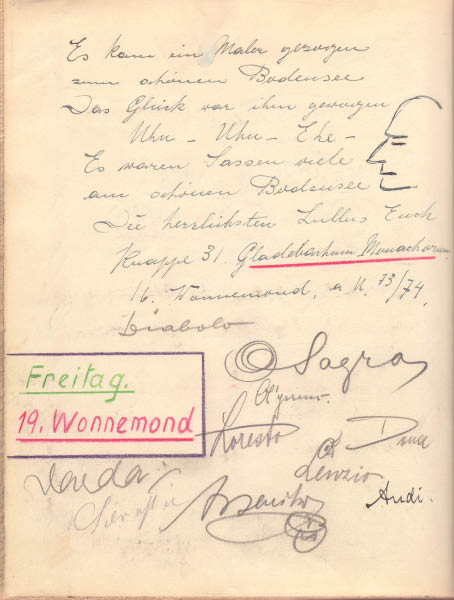 Es kam ein Maler gezogen
zum schönen Bodensee
Das Glück war ihm gewogen
Uhu - Uhu - Ehe -
Es waren Sassen viele
am schönen Bodensee
Die herzlichsten Lullus Euch
Knappe 31. Gladebachum Monachorum
16. Wonnemond, a. U. 73/74,
Diabolo
Sagra
Freitag.
19. Wonnemond
Loresto
Lenzio
Audi.